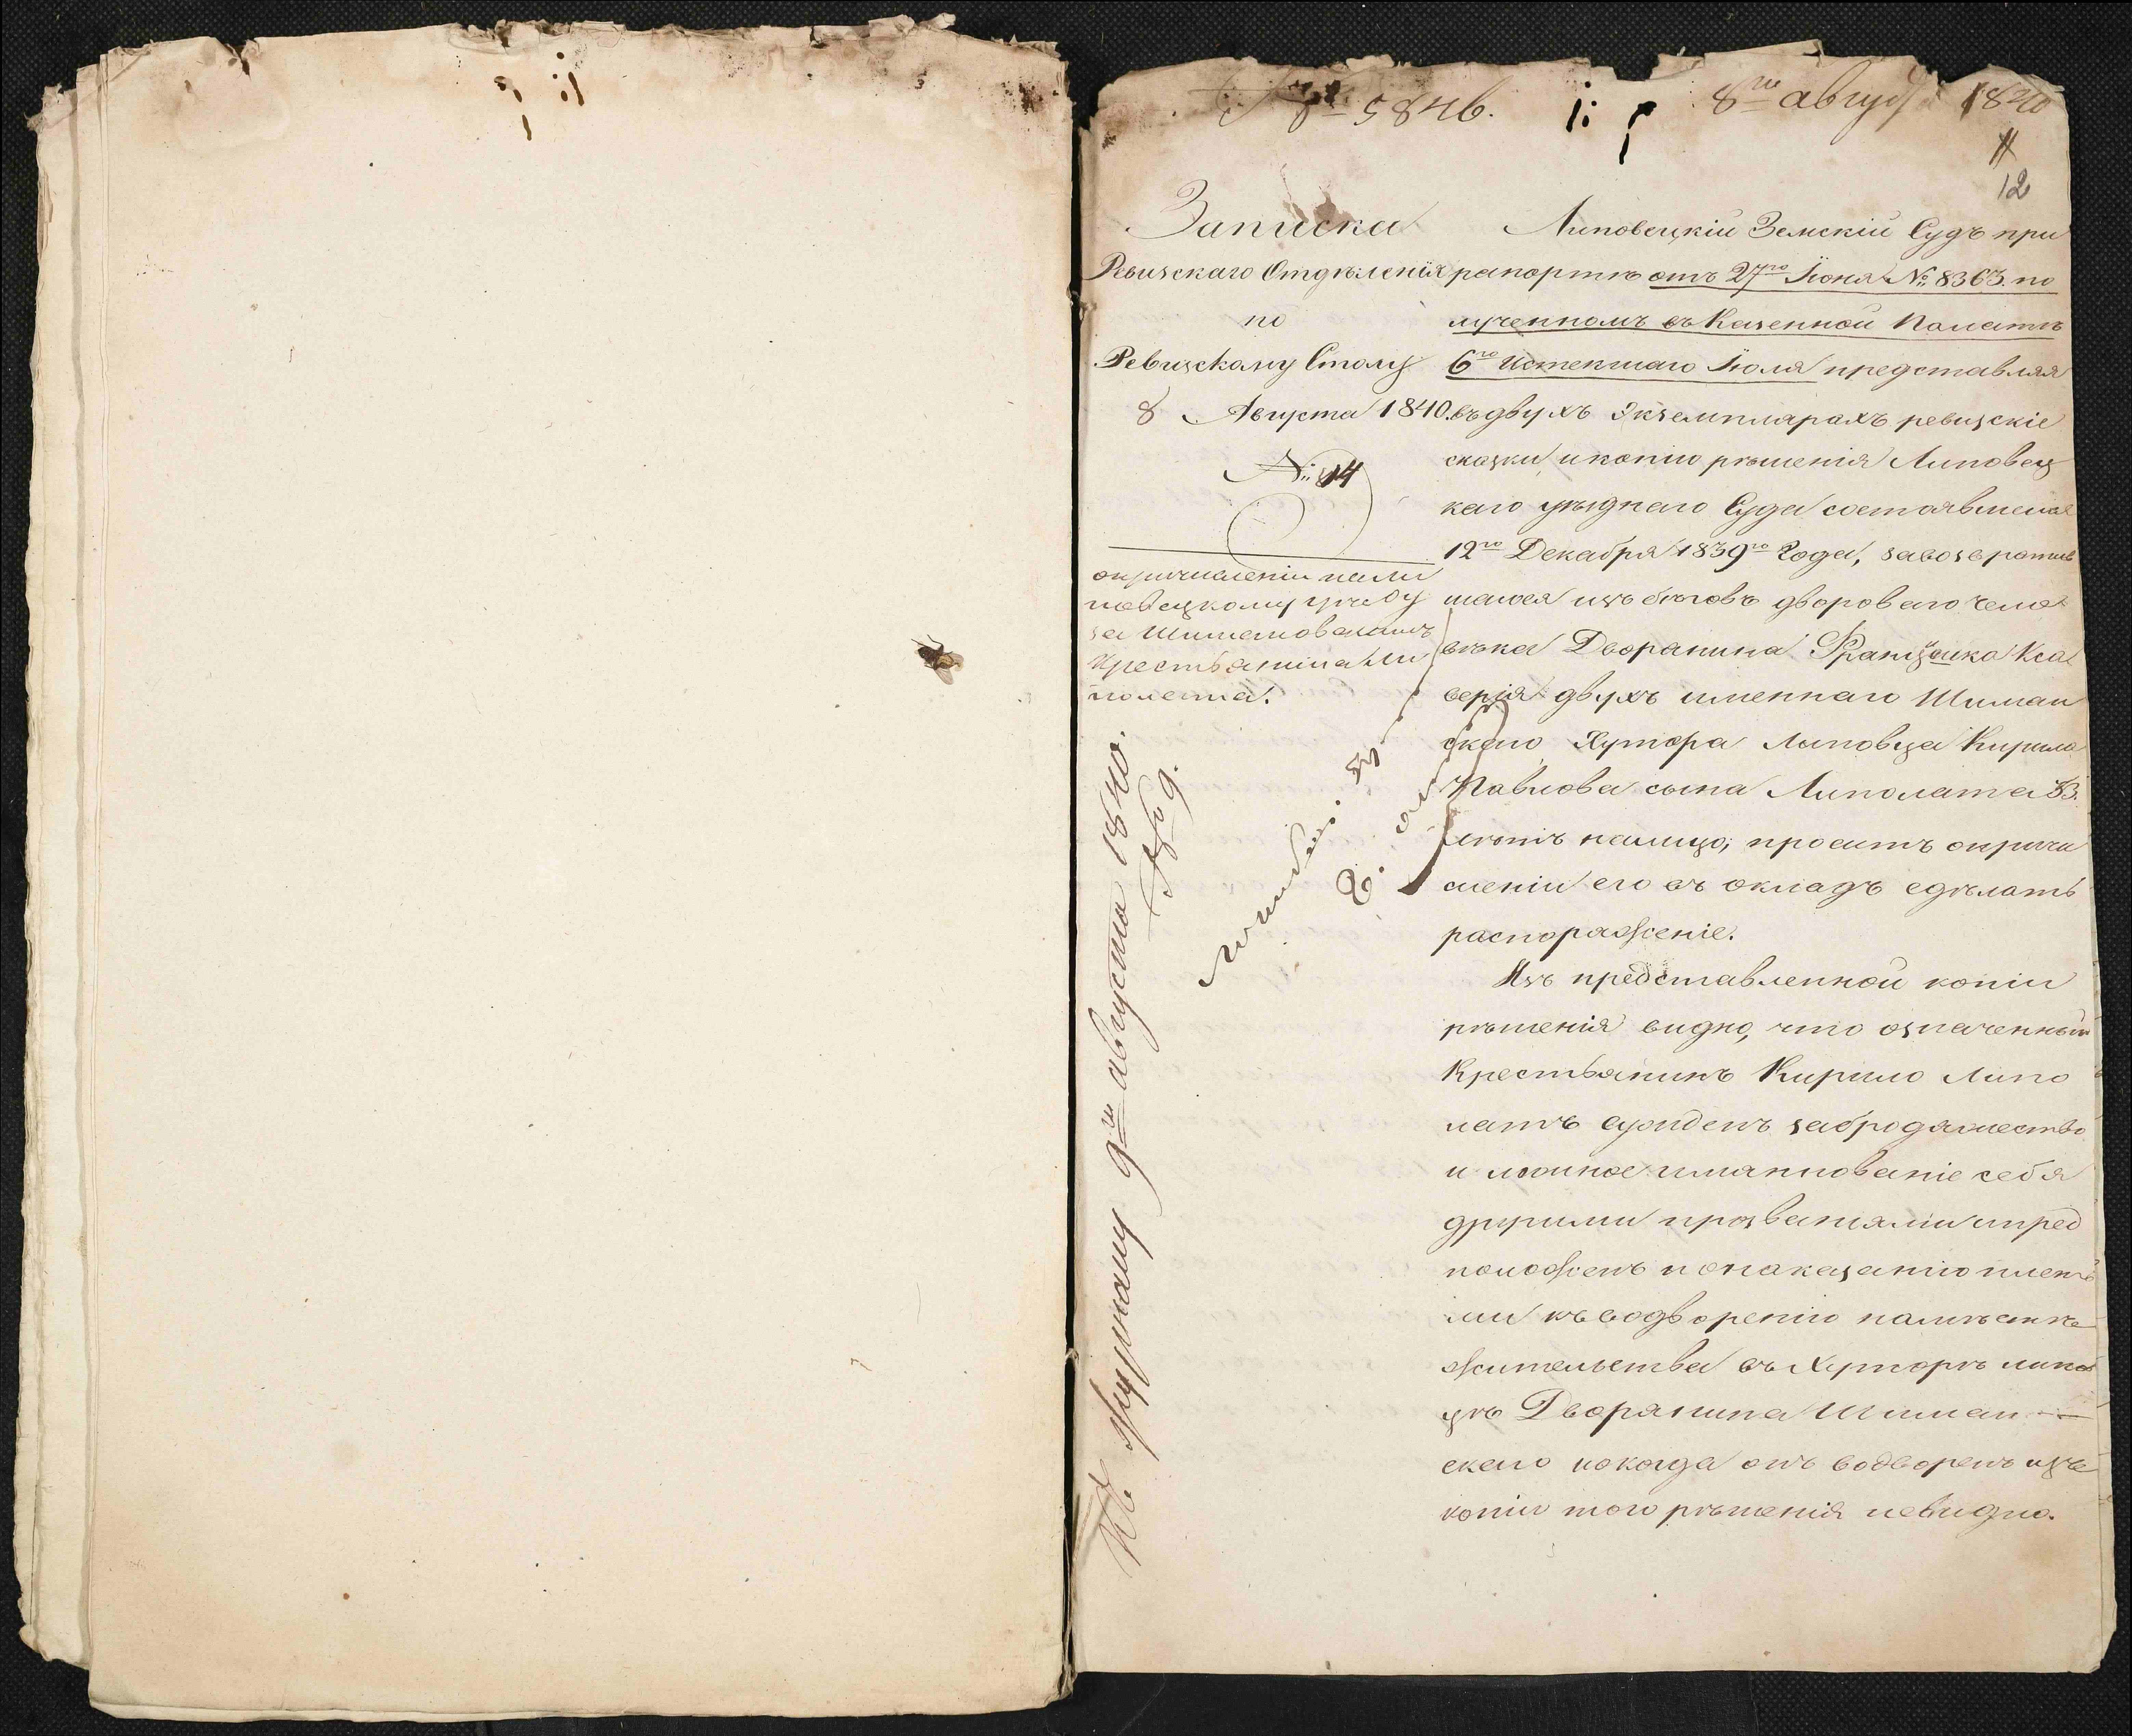 5846.
8го августа 1840
11
12
Записка
Ревизскаго Отдѣленія
по
Ревизскому Столу
8 Августа 1840.
№ 14
о причисленіи по Ли
повецкому уѣзду
за Шимановскимъ
крестьянина Ли
полата.
Къ журналу 9го августа 1840.
Липовецкій Земскій Судъ при
рапортѣ отъ 27го Іюня № 8363. по
лученномъ въ Казенной Палатѣ
6го истекшаго Іюля представляя
въ двухъ экземплярахъ ревизскіе
сказки и копію рѣшенія Липовец
каго уѣзднаго Суда состоявшегося
12го Декабря 1839го Года, за возвратив
шагося изъ бѣговъ двороваго чело
вѣка Дворянина Францишка Кса
верія двухъ именнаго Шиман
скаго, Хутора Липовца Кирила
Павлова сына Липолата 33.
лѣтъ налицо, проситъ о причи
сленіи его въ окладъ сдѣлать
распоряженіе.
Изъ представленной копіи
рѣшенія видно, что означенный
Крестьянинъ Кирило Липо
латъ сужденъ за бродяжество
и ложное имянованіе себя
другими прозваніями и пред
положенъ по наказанію плеть
ми къ водворенію на мѣстѣ
жительства въ Хуторѣ Липов
цѣ Дворянина Шиман —
скаго но когда онъ водворенъ изъ
копіи того рѣшенія невидно.